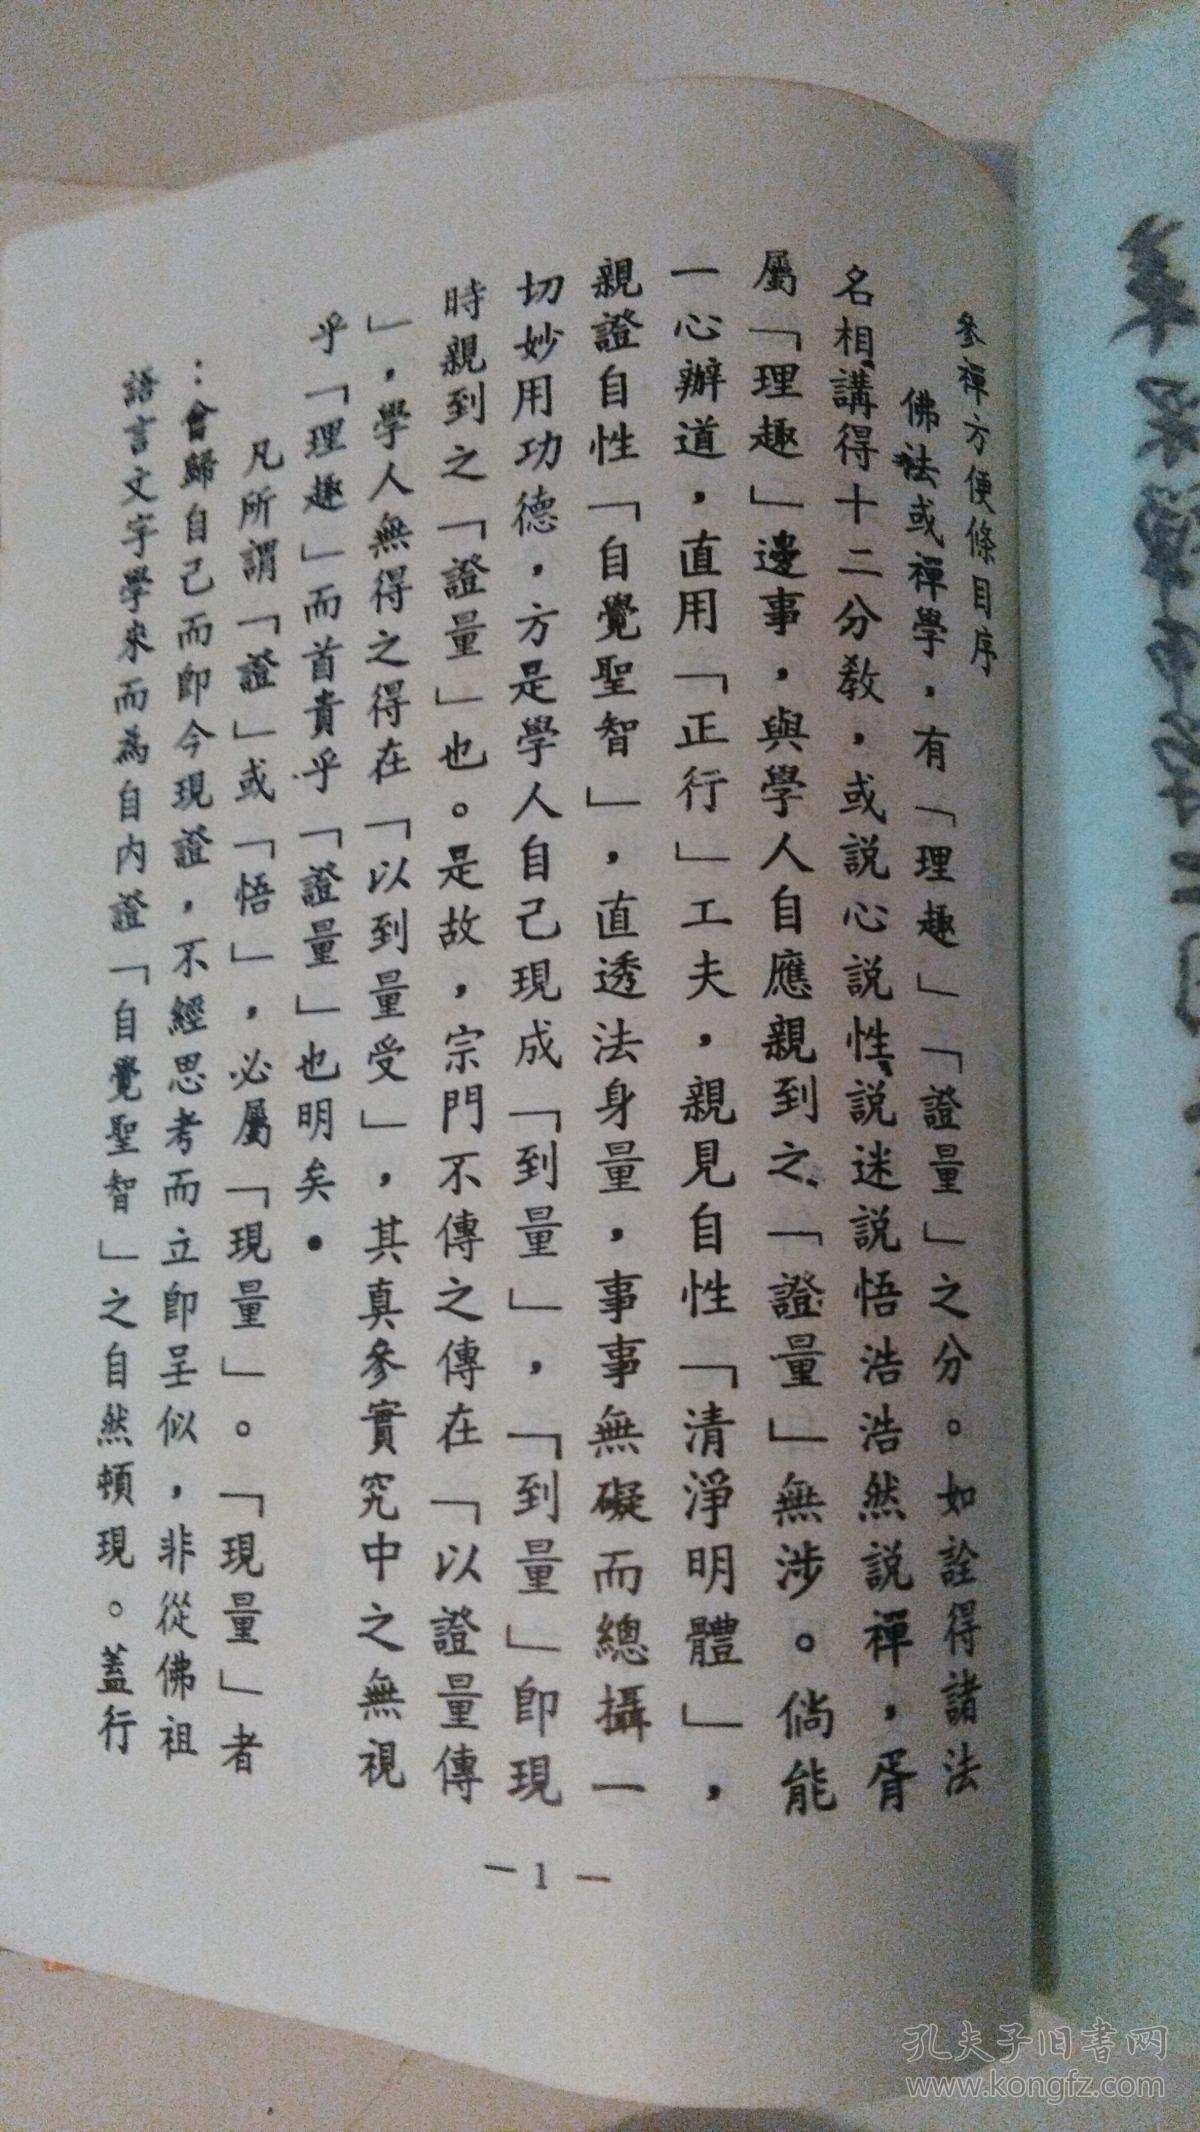 參禪方便條目序
佛法或禪學，有「理趣」「證量」之分。如詮得諸法
名相、講得十二分教，或説心説性、説迷説悟浩浩然説禪，胥
屬「理趣」邊事，與學人自應親到之、「證量」無涉。倘能
一心辦道，直用「正行」工夫，親見自性「清淨明體」，
親證自性「自覺聖智」，直透法身量，事事無礙而總攝一
切妙用功德，方是學人自己現成「到量」，「到量」即現
時親到之「證量」也。是故，宗門不傳之傳在「以證量傳
」，學人無得之得在「以到量受」，其真參實究中之無視
乎「理趣」而首貴乎「證量」也明矣．
凡所謂「證」或「悟」，必屬「現量」。「現量」者
：會歸自己而即今現證，不經思考而立即呈似，非從佛祖
語言文字學來而為自内證「自覺聖智」之自然頓現。蓋行
—1—
孔夫子旧書网
www.kongfz.com